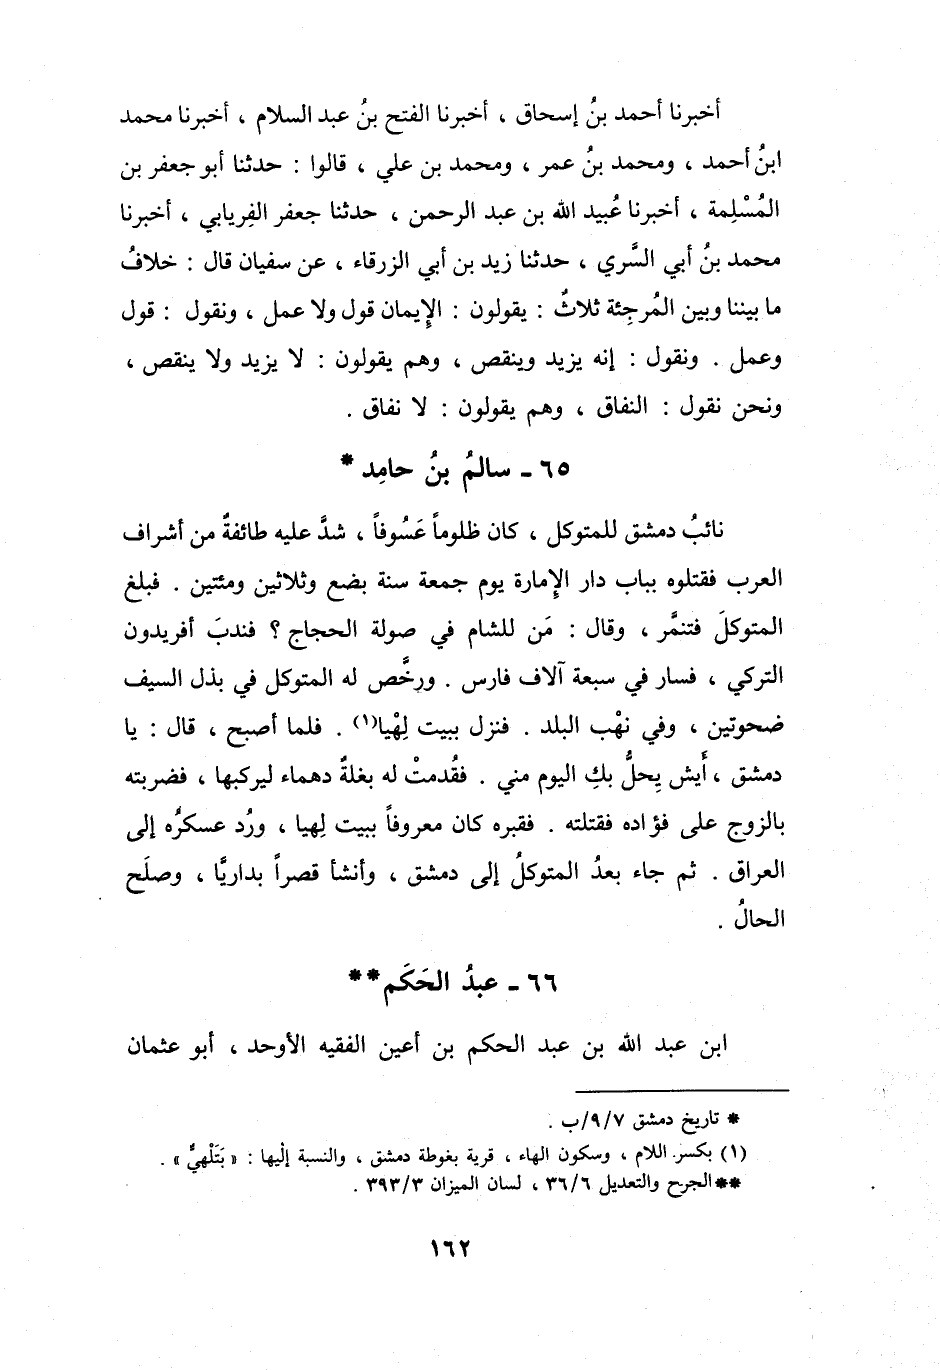 أخبرنا أحمد بنُ إسحاق ، أخبرنا الفتح بنُ عبد السلام ، أخبرنا محمد
ابنُ أحمد ، ومحمد بنُ عمر ، ومحمد بن علي ، قالوا : حدثنا أبو جعفر بن
المُسْلِمة ، أخبرنا عُبيد الله بن عبد الرحمن ، حدثنا جعفر الفِريابي ، أخبرنا
محمد بنُ أبي السَّري ، حدثنا زيد بن أبي الزرقاء ، عن سفيان قال : خلافُ
ما بيننا وبين المُرجِئة ثلاثٌ : يقولون : الإِيمان قول ولا عمل ، ونقول : قول
وعمل . ونقول : إنه يزيد وينقص ، وهم يقولون : لا يزيد ولا ينقص ،
ونحن نقول : النفاق ، وهم يقولون : لا نفاق .
٦٥ - سالمُ بنُ حامِد *
نائبُ دمشق للمتوكل ، كان ظلوماً عَسُوفاً ، شدَّ عليه طائفةٌ من أشراف
العرب فقتلوه بباب دار الإِمارة يوم جمعة سنة بضع وثلاثين ومئتين . فبلغ
المتوكلَ فتنمَّر ، وقال : مَن للشام في صولة الحجاج ؟ فندبَ أفريدون
التركي ، فسار في سبعة آلاف فارس . ورخَّص له المتوكل في بذل السيف
ضحوتين ، وفي نهْب البلد . فنزل ببيت لِهْيا(١) . فلما أصبح ، قال : يا
دمشق ، أَيش يحلُّ بكِ اليوم مني . فقُدمتْ له بغلةٌ دهماء ليركبها ، فضربته
بالزوج على فؤاده فقتلته . فقبره كان معروفاً ببيت لِهيا ، ورُد عسكرُه إلى
العراق . ثم جاء بعدُ المتوكلُ إلى دمشق ، وأنشأ قصراً بداريَّا ، وصلَح
الحالُ .
٦٦ - عبدُ الحَكَم **
ابن عبد الله بن عبد الحكم بن أعين الفقيه الأوحد ، أبو عثمان
* تاريخ دمشق ٩/٧/ب .
(١) بكسر اللام ، وسكون الهاء ، قرية بغوطة دمشق ، والنسبة إليها : « بَتَلْهيٌّ » .
** الجرح والتعديل ٣٦/٦ ، لسان الميزان ٣٩٣/٣ .
١٦٢